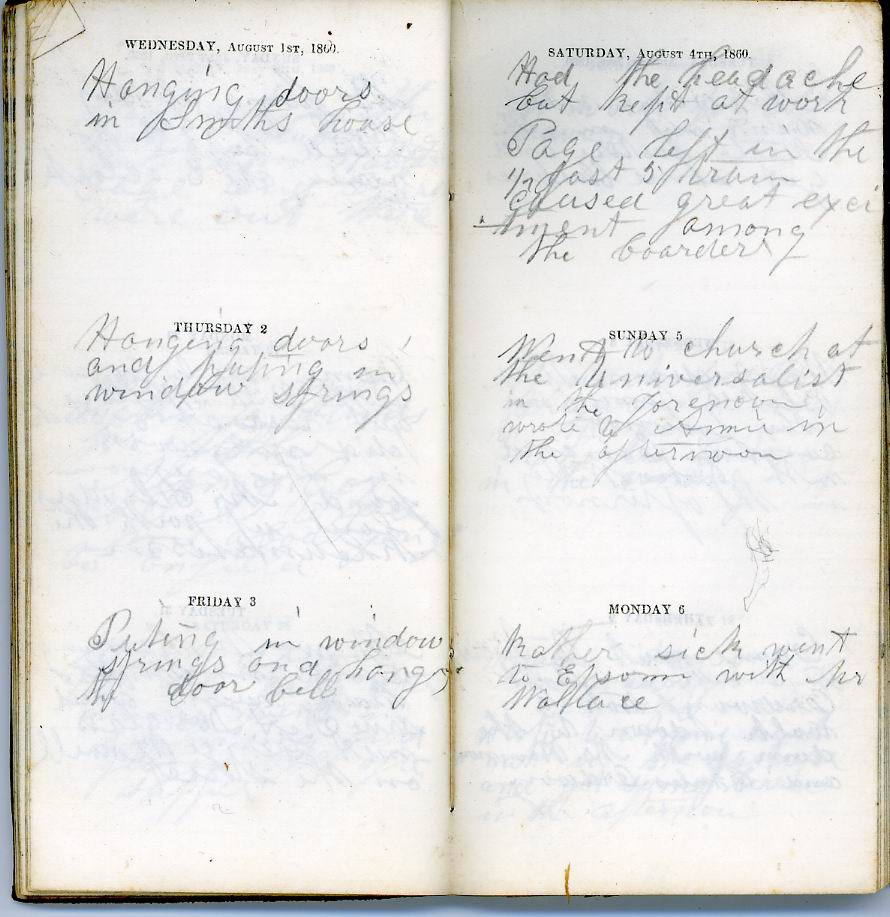 WEDNESDAY, AUGUST 1ST, 1860.
Hanging doors
in Smiths house
THURSDAY 2
Hanging doors
and puting in
window springs
FRIDAY 3
Puting in window
springs and hanging
door bell
SATURDAY, AUGUST 4TH, 1860.
Had the headache
but kept at work
Page left in the
1/2 past 5 train
caused great exci
tment among
the boarders
SUNDAY 5
Went to church at
the Universalist
in the forenoon
wrote to Annie in
the afternoon
MONDAY 6
Rather sick went
to Epsom with Mr
Wallace